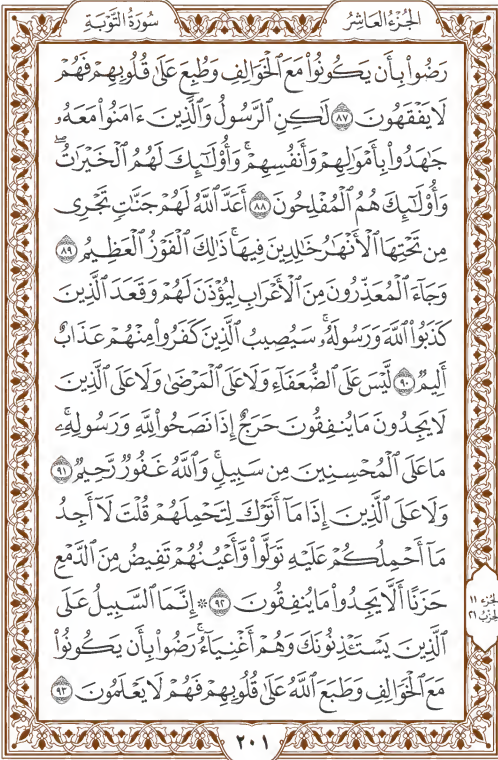 سُورَةُ التَّوْبَةِ
الجُزْءُ العَاشِرُ
رَضُوا۟ بِأَن يَكُونُوا۟ مَعَ ٱلْخَوَالِفِ وَطُبِعَ عَلَىٰ قُلُوبِهِمْ فَهُمْ
لَا يَفْقَهُونَ ٨٧ لَٰكِنِ ٱلرَّسُولُ وَٱلَّذِينَ ءَامَنُوا۟ مَعَهُۥ
جَٰهَدُوا۟ بِأَمْوَٰلِهِمْ وَأَنفُسِهِمْ ۚ وَأُو۟لَٰٓئِكَ لَهُمُ ٱلْخَيْرَٰتُ ۖ
وَأُو۟لَٰٓئِكَ هُمُ ٱلْمُفْلِحُونَ ٨٨ أَعَدَّ ٱللَّهُ لَهُمْ جَنَّٰتٍ تَجْرِى
مِن تَحْتِهَا ٱلْأَنْهَٰرُ خَٰلِدِينَ فِيهَا ۚ ذَٰلِكَ ٱلْفَوْزُ ٱلْعَظِيمُ ٨٩
وَجَآءَ ٱلْمُعَذِّرُونَ مِنَ ٱلْأَعْرَابِ لِيُؤْذَنَ لَهُمْ وَقَعَدَ ٱلَّذِينَ
كَذَبُوا۟ ٱللَّهَ وَرَسُولَهُۥ ۚ سَيُصِيبُ ٱلَّذِينَ كَفَرُوا۟ مِنْهُمْ عَذَابٌ
أَلِيمٌ ٩٠ لَّيْسَ عَلَى ٱلضُّعَفَآءِ وَلَا عَلَى ٱلْمَرْضَىٰ وَلَا عَلَى ٱلَّذِينَ
لَا يَجِدُونَ مَا يُنفِقُونَ حَرَجٌ إِذَا نَصَحُوا۟ لِلَّهِ وَرَسُولِهِۦ ۚ
مَا عَلَى ٱلْمُحْسِنِينَ مِن سَبِيلٍ ۚ وَٱللَّهُ غَفُورٌ رَّحِيمٌ ٩١
وَلَا عَلَى ٱلَّذِينَ إِذَا مَآ أَتَوْكَ لِتَحْمِلَهُمْ قُلْتَ لَآ أَجِدُ
مَآ أَحْمِلُكُمْ عَلَيْهِ تَوَلَّوا۟ وَّأَعْيُنُهُمْ تَفِيضُ مِنَ ٱلدَّمْعِ
حَزَنًا أَلَّا يَجِدُوا۟ مَا يُنفِقُونَ ٩٢ ۞ إِنَّمَا ٱلسَّبِيلُ عَلَى
ٱلَّذِينَ يَسْتَـْٔذِنُونَكَ وَهُمْ أَغْنِيَآءُ ۚ رَضُوا۟ بِأَن يَكُونُوا۟
مَعَ ٱلْخَوَالِفِ وَطَبَعَ ٱللَّهُ عَلَىٰ قُلُوبِهِمْ فَهُمْ لَا يَعْلَمُونَ ٩٣
الجزء ١١
الحزب ٢١
٢٠١